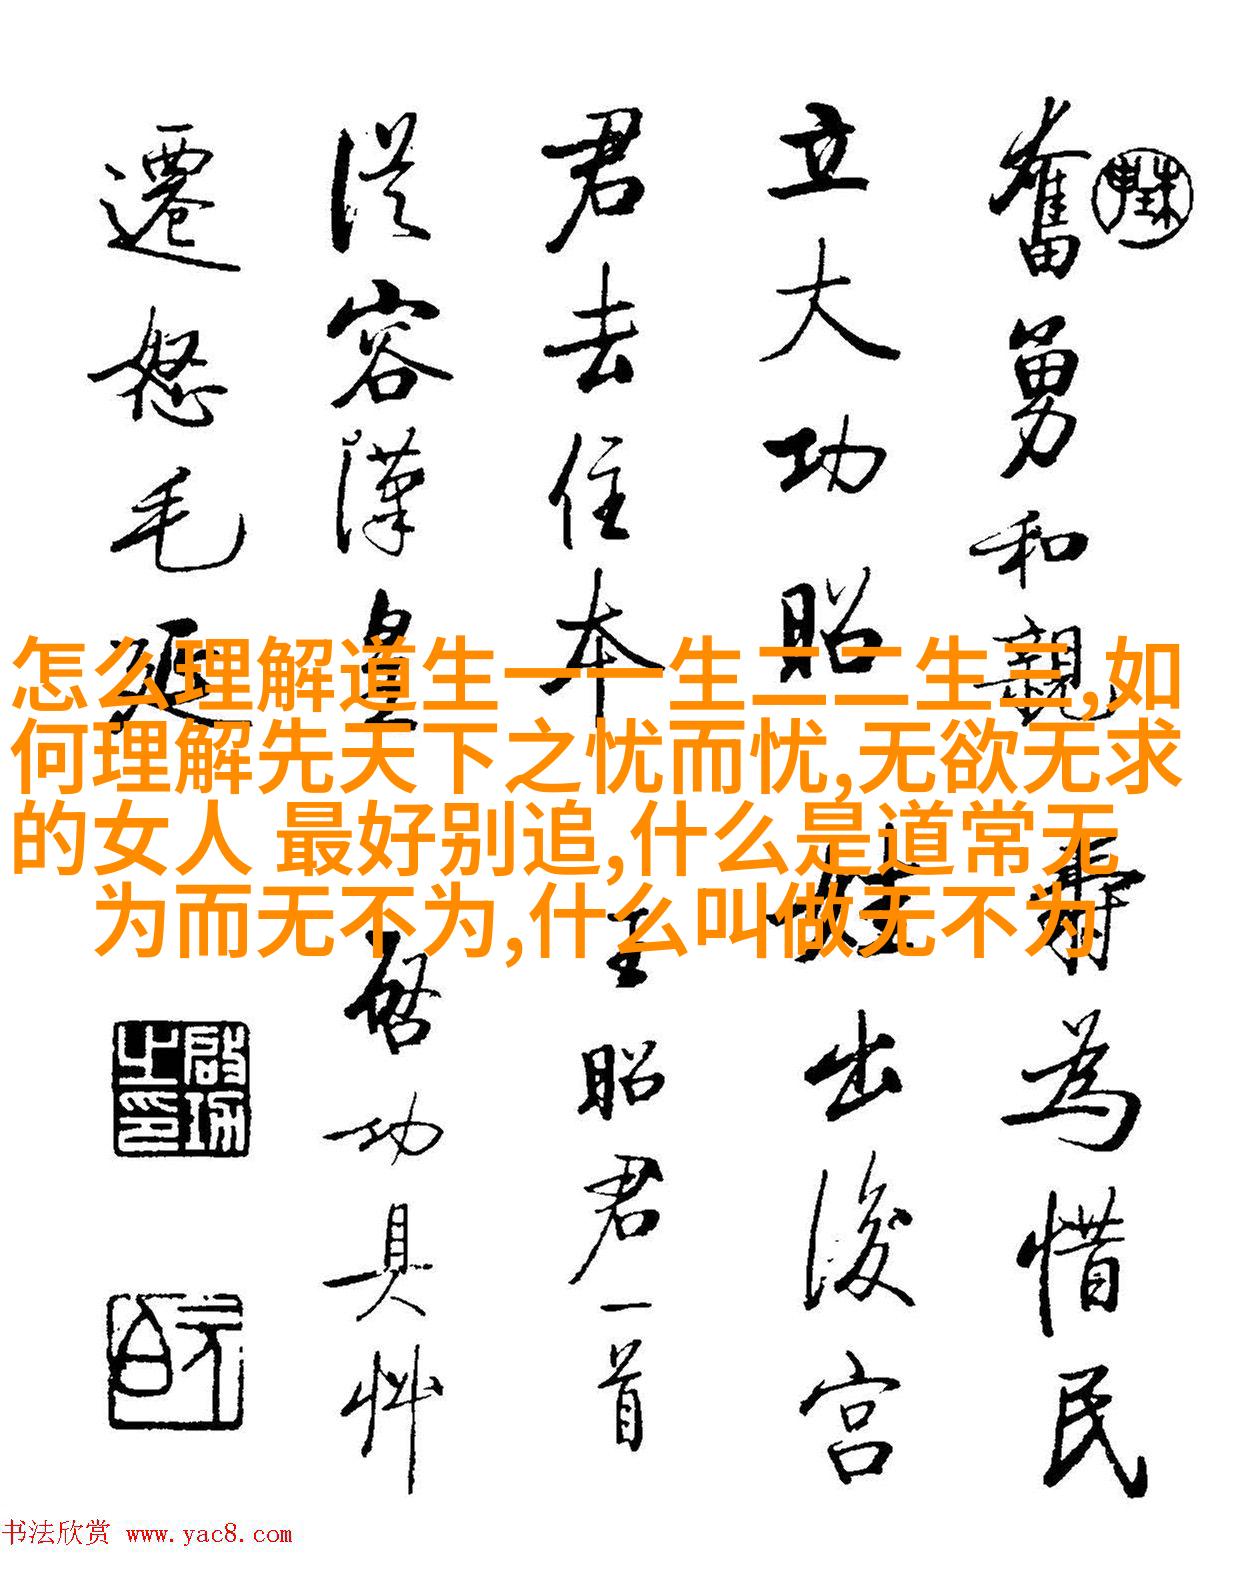 奮勇和親
立大功昭
君去住本
從容漢皇
遷怒毛延
怎么理解道生一一生二二生三,如
何理解先天下之忧而忧,无欲无求
的女人 最好别追,什么是道常无
为而无不为,什么叫做无不为
壽為惜民
娃出後宮
王昭君一首
啓功具艸
啟功之印
元白
书法欣赏 www.yac8.com